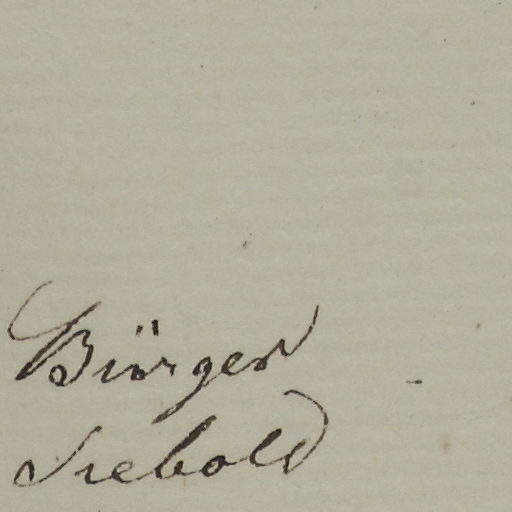 Bürger
Siebold